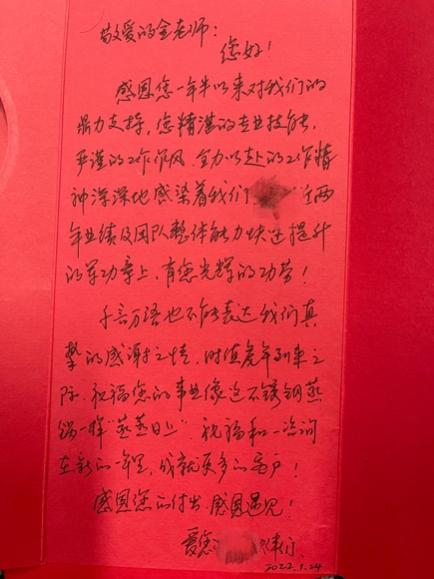 敬爱的金老师:
您好!
感恩您一年半以来对我们的
鼎力支持,您精湛的专业技能,
严谨的工作作风,全力以赴的工作精
神深深地感染着我们 近两
年业绩及团队整体能力快速提升
的军功章上,有您光辉的功劳!
千言万语也不能表达我们真
挚的感谢之情,时值虎年到来之
际,祝福您的事业像这不锈钢蒸
锅一样“蒸蒸日上”祝福和一咨询
在新的一年里,成就更多的客户!
感恩您的付出,感恩遇见!
爱您
2022.1.24